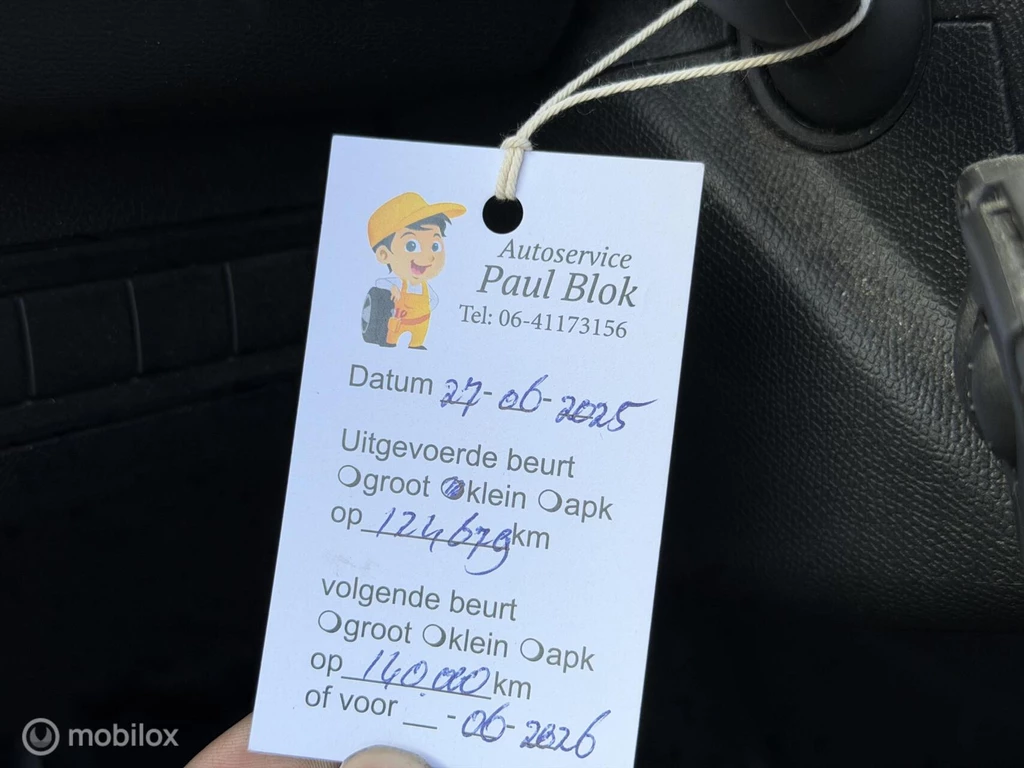 Autoservice
Paul Blok
Tel: 06-41173156
Datum 27-06-2025
Uitgevoerde beurt
groot klein apk
op 124679 km
volgende beurt
groot klein apk
op 140.000 km
of voor __-06-2026
mobilox